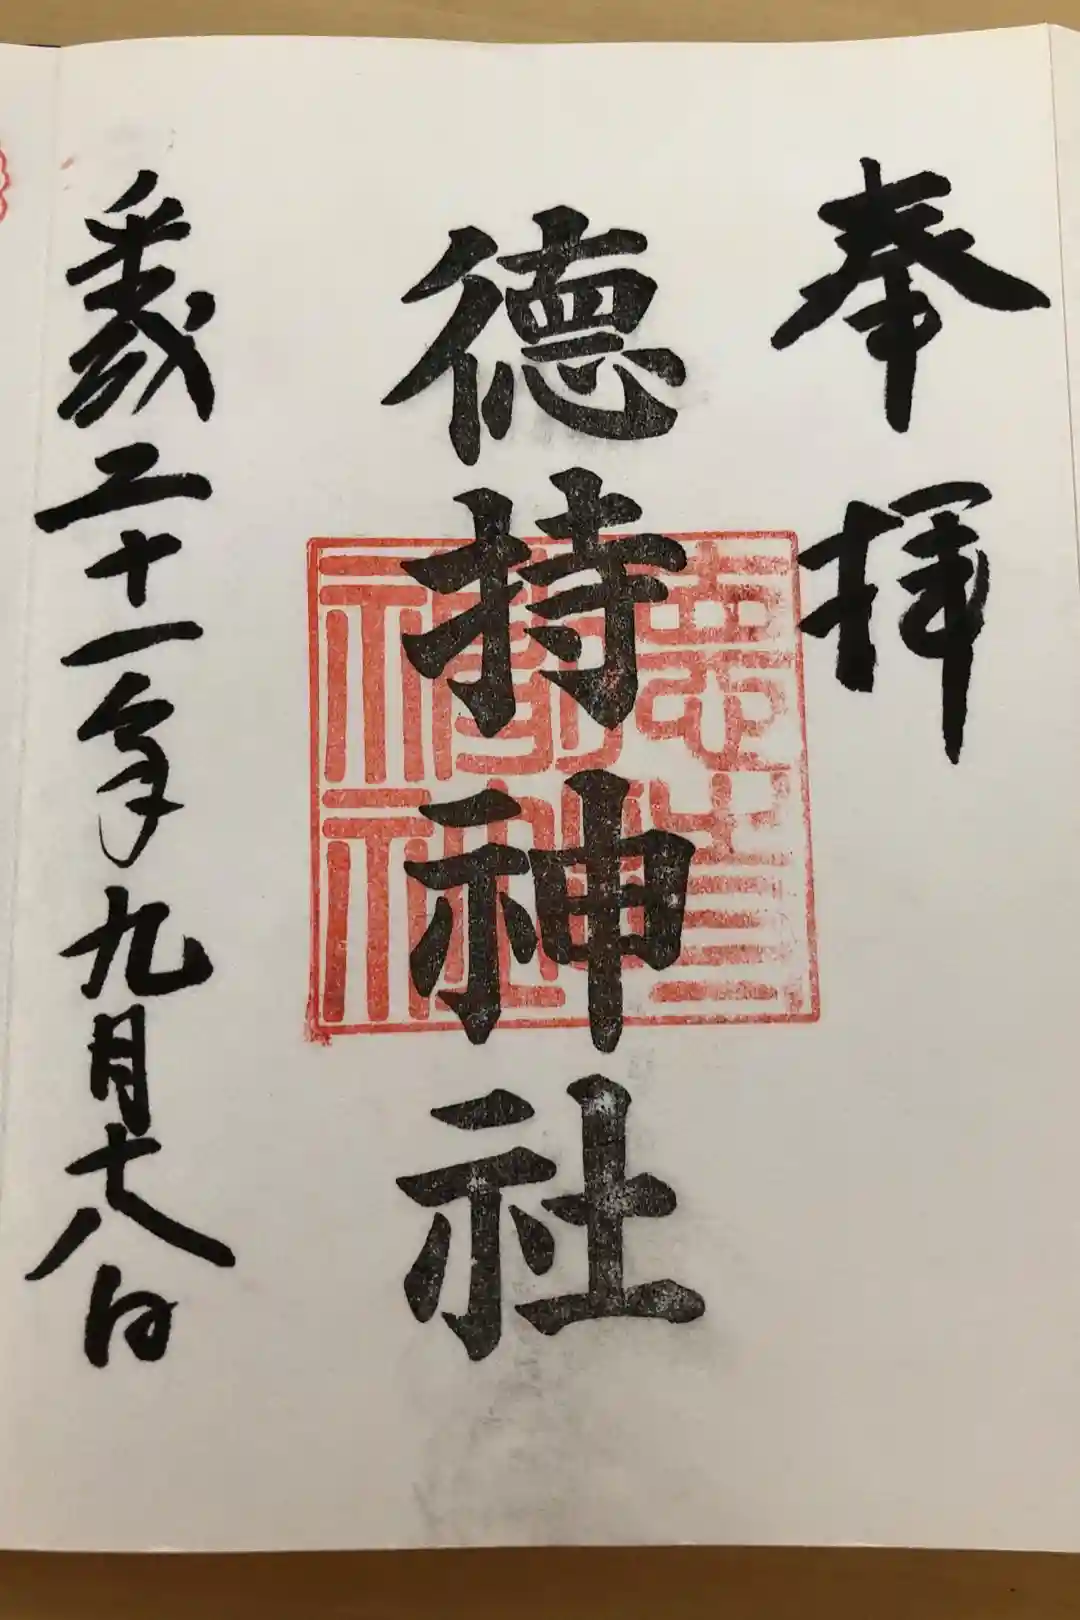 奉拝
徳持神社
平成二十一年九月十八日